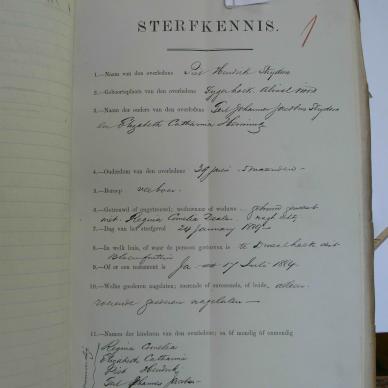 STERFKENNIS.
1.—Naam van den overledene Piet Hendrik Snyders
2.—Geboorteplaats van den overledene Tygerhoek Aliwal Noord
3.—Naam der ouders van den overledene Gert Johannes Jacobus Snyders
en Elizabeth Catharina
4.—Ouderdom van den overledene 39 jaren 5 maanden
5.—Beroep veeboer
6.—Getrouwd of ongetrouwd; weduwnaar of weduwe
met Regina Cornelia
7.—Dag van het sterfgeval 24 January
8.—In welk huis, of waar de persoon gestorven is te Draaihoek dist
Bloemfontein
9.—Of er een testament is Ja 17 Juli 1884
10.—Welke goederen nagelaten; roerende of onroerende, of beide,
roerende goederen nagelaten
11.—Namen der kinderen van den overledene; en of mondig of onmondig
Regina Cornelia
Elizabeth Catharina
Piet Hendrik
Gert Johannes Jacobus